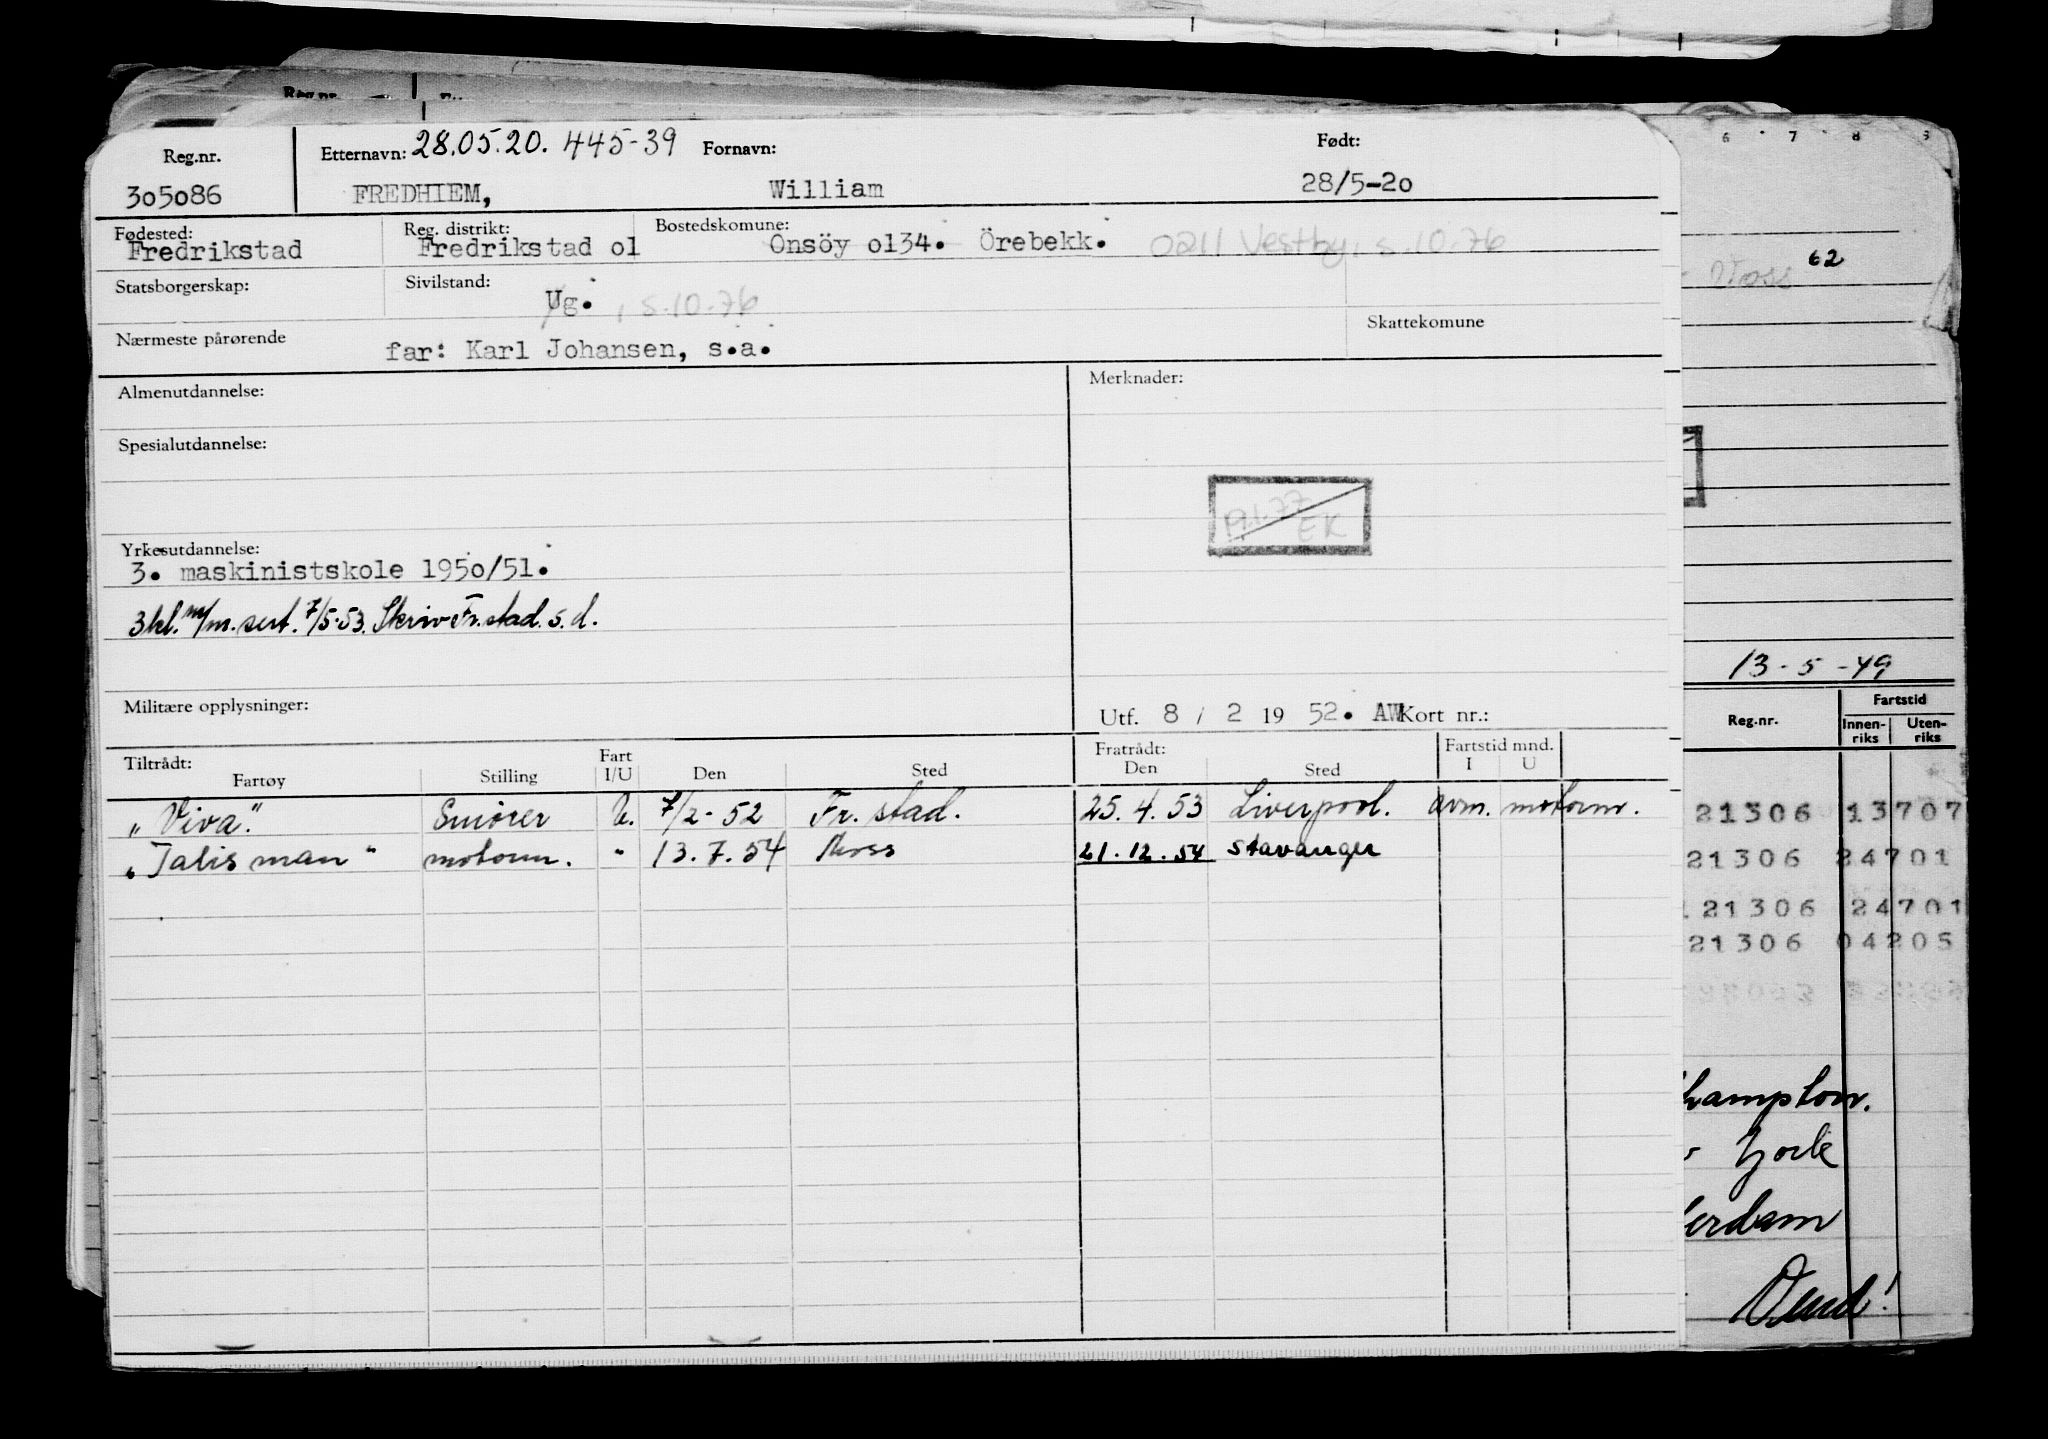 Reg.nr.
Etternavn: 28.05.20. 445-39 Fornavn: Født:
305086 FREDHIEM, William 28/5-20
Fødested: Reg. distrikt: Bostedskomune:
Fredrikstad Fredrikstad ol Onsöy ol34. Örebekk. 0211 Vestby, s.10.76
Statsborgerskap: Sivilstand:
Ug. , s.10-76
Nærmeste pårørende Skattekomune
far: Karl Johansen, s.a.
Almenutdannelse: Merknader:
Spesialutdannelse:
19.1.77 EK
Yrkesutdannelse:
3. maskinistskole 195o/51.
3kl. m/m. sert. 7/5-53. Skriv Fr.stad. s. d.
Militære opplysninger:
Utf. 8 / 2 19 52. AW Kort nr.:
Tiltrådt: Fratrådt: Fartstid mnd.
Fartøy Stilling Fart I/U Den Sted Den Sted I U
"Viva". Smörer U. 7/2-52 Fr. stad. 25.4.53 Liverpool. avm. motorm.
"Talisman" motorm. " 13.7.54 Moss 21.12.54 Stavanger
6 7 8 9
Moss 62
13-5-49
Reg.nr. Fartstid
Innen-riks Uten-riks
21306 13707
21306 24701
21306 24701
21306 04205
hampton.
York
erdam